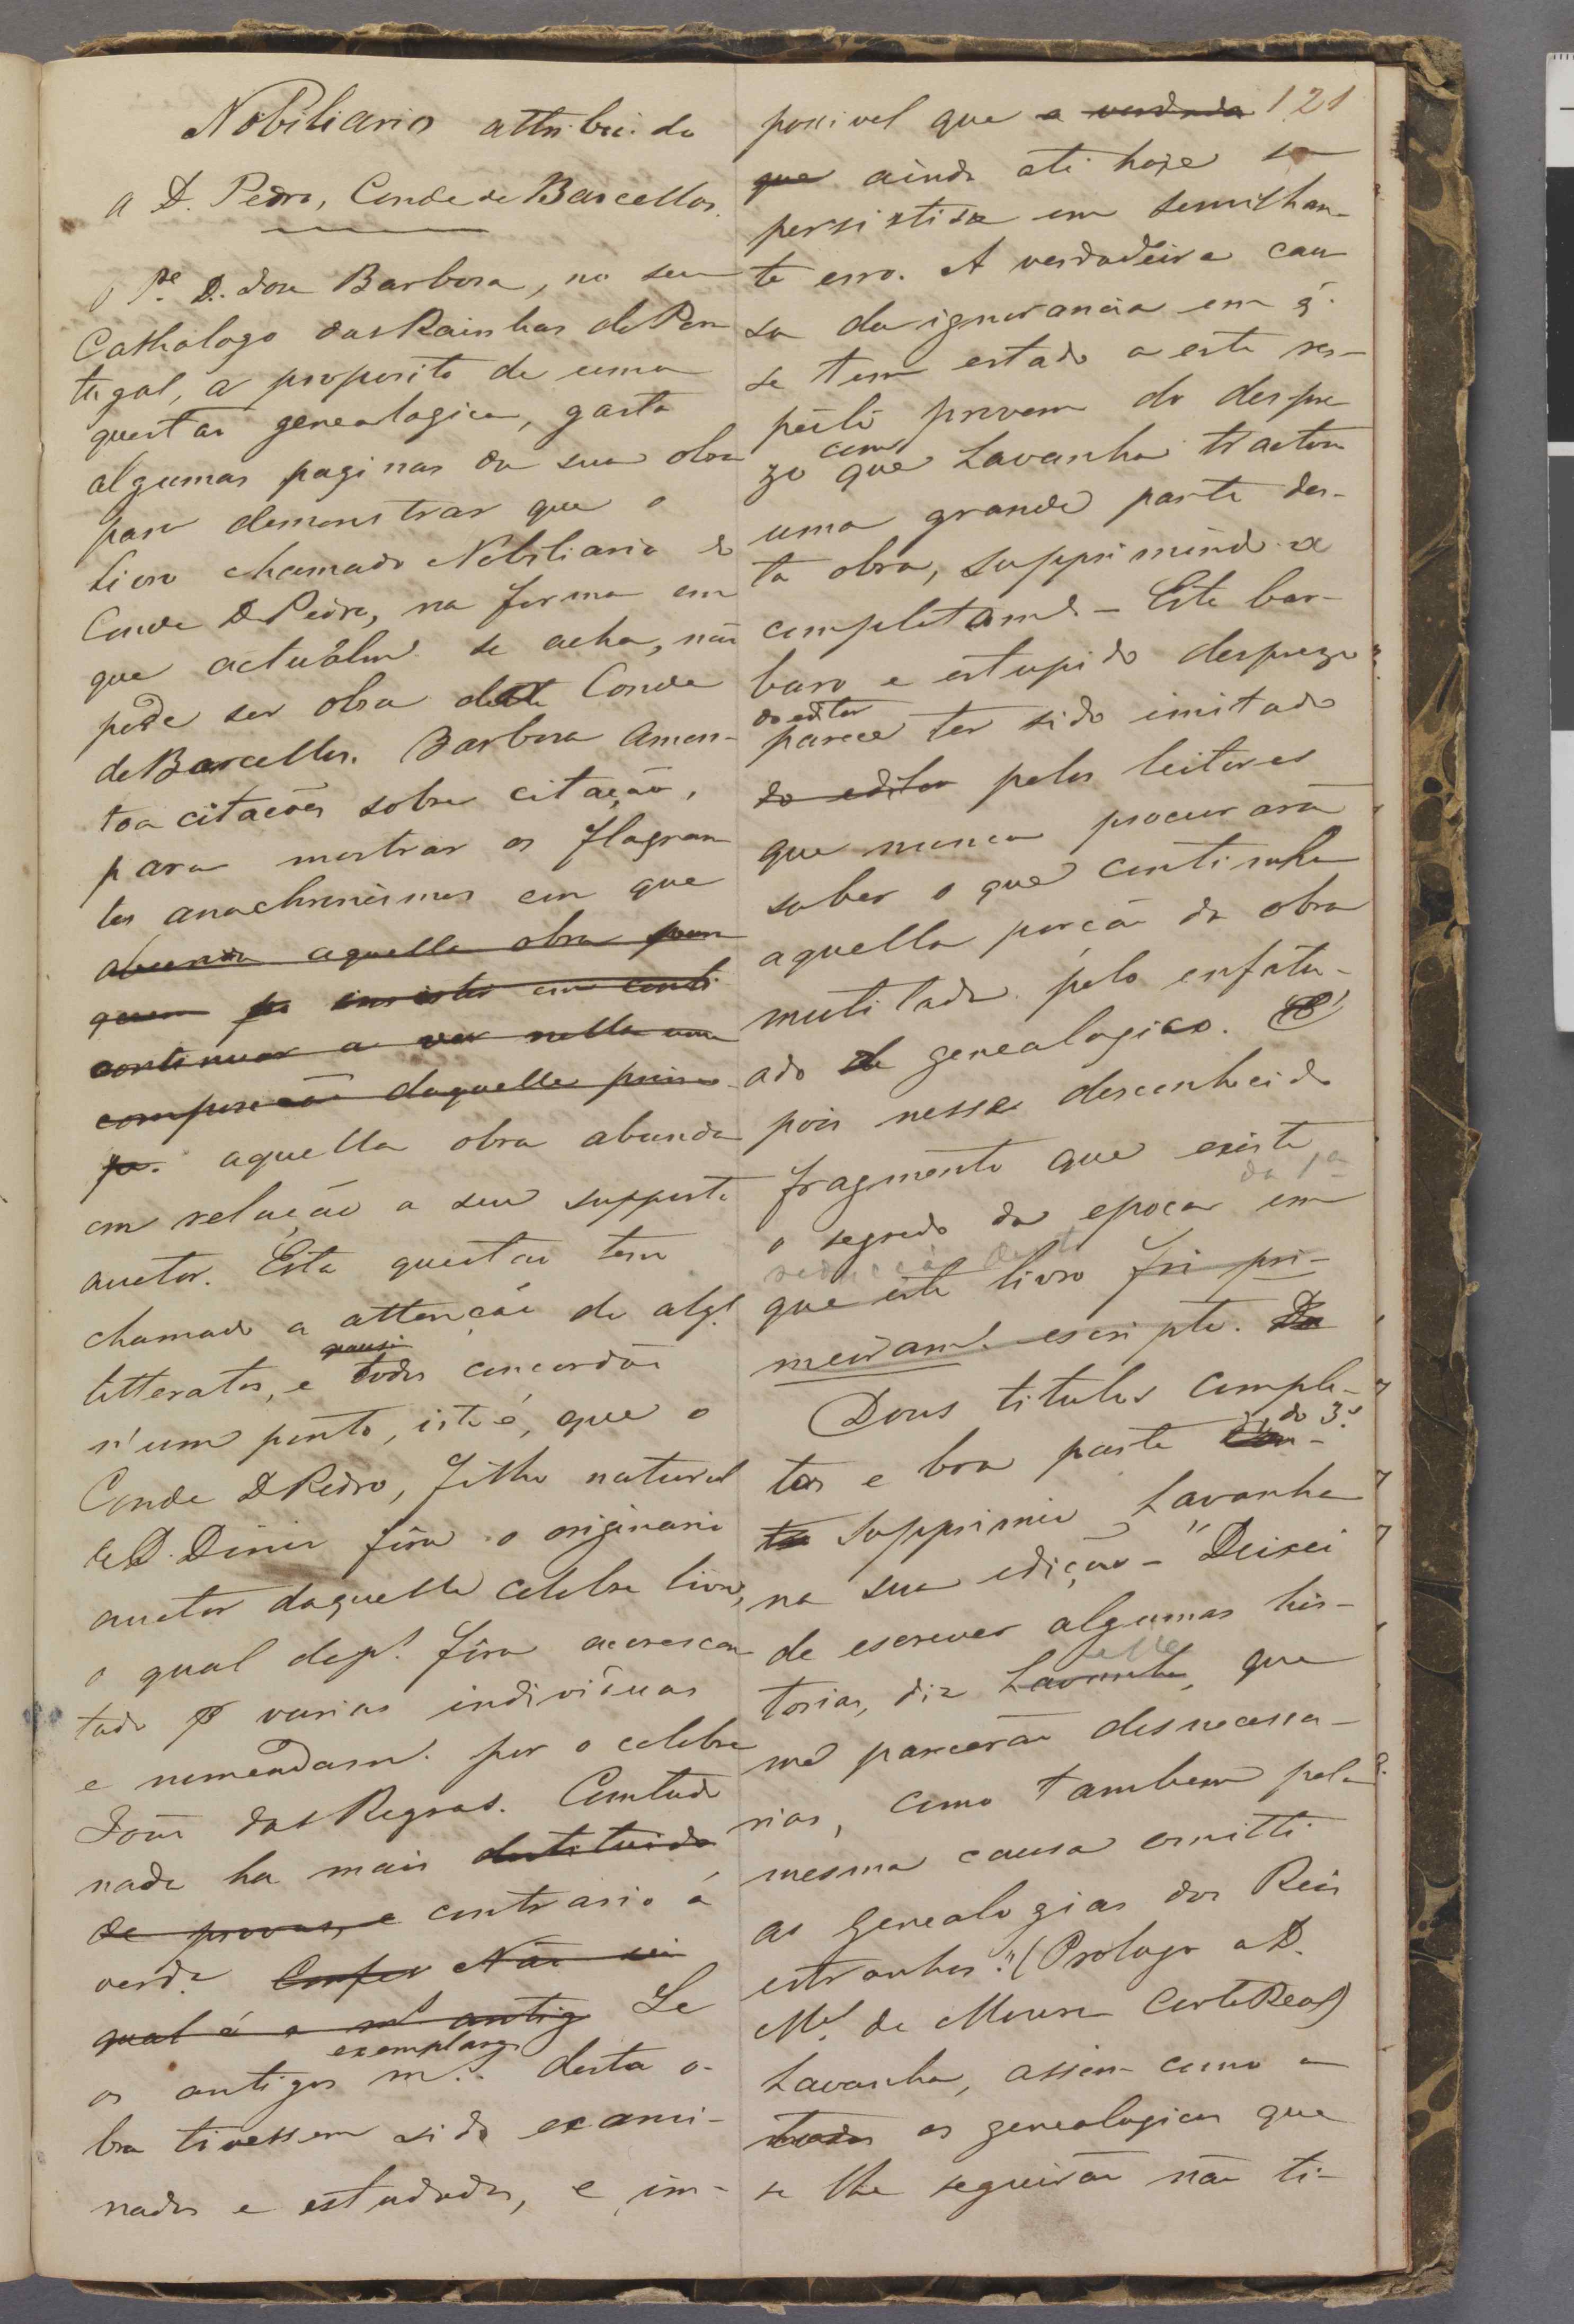 Nobiliario attribuido
a D. Pedro, Conde de Barcellos.
O Pe. D. Jose Barbosa, no seu
Cathalogo das Rainhas de Por
tugal, a proposito de uma
questão genealogica, gasta
algumas paginas da sua obra
para demonstrar que o
livro chamado Nobiliario do
Conde D. Pedro, na forma em
que actualmte. se acha, não
póde ser obra deste Conde
de Barcellos. Barbosa amon-
toa citações sobre citação,
para mostrar os flagran
tes anachronismos em que
abunda aquella obra para
quem insistir em conti
continuar a ver nella uma
composição daquelle princi
pe. aquella obra abunda
em relação a seu supposto
auctor. Esta questão tem
chamado a attenção de algs.
litteratos, e quasi todos concordão
n'um ponto, isto é, que o
Conde D. Pedro, filho natural
de D. Diniz fôra o originario
auctor daquelle celebre livro,
o qual dep.s fôra acrescen
tado por varios individuos
e nomeadamte. por o celebre
João das Regras. Comtudo
nada ha mais destituido
de provas, e contrario á
verde. Não sei
qual é o ms. antig Se
os antigos exemplares ms. desta o-
bra tivessem sido exami-
nados e estudados, e im-
possivel que a verdade 121
que ainda até hoje se
persistisse em semilhan-
te erro. A verdadeira cau
sa da ignorancia em q̃
se tem estado a este res-
peito provem do despre
zo com que Lavanha tractou
uma grande parte des-
ta obra, supprimindo-a
completamte. - Este bar-
baro e estupido desprezo
do editor parece ter sido imitado
do editor pelos leitores
que nunca procurarão
saber o que continha
aquella porção da obra
mutilada pelo enfatu-
ado genealogico. É
pois nesse desconhecido
fragmento que existe
o segredo da epoca em
da 1a
redacção deste
que este livro foi pri-
meiramte. escripto. Do
Dous titulos comple-
tos e boa parte do 3º.
supprimiu Lavanha
na sua edição - "Deixei
de escrever algumas his-
torias, diz Lavanha elle, que
me parcerão desnecessa-
rias, como tambem pela
mesma causa omitti
as genealogias dos Reis
estranhos." (Prologo a D.
Ml. de Moura Corte Real)
Lavanha, assim como
todos os genealogicos que
se lhe seguirão não ti-